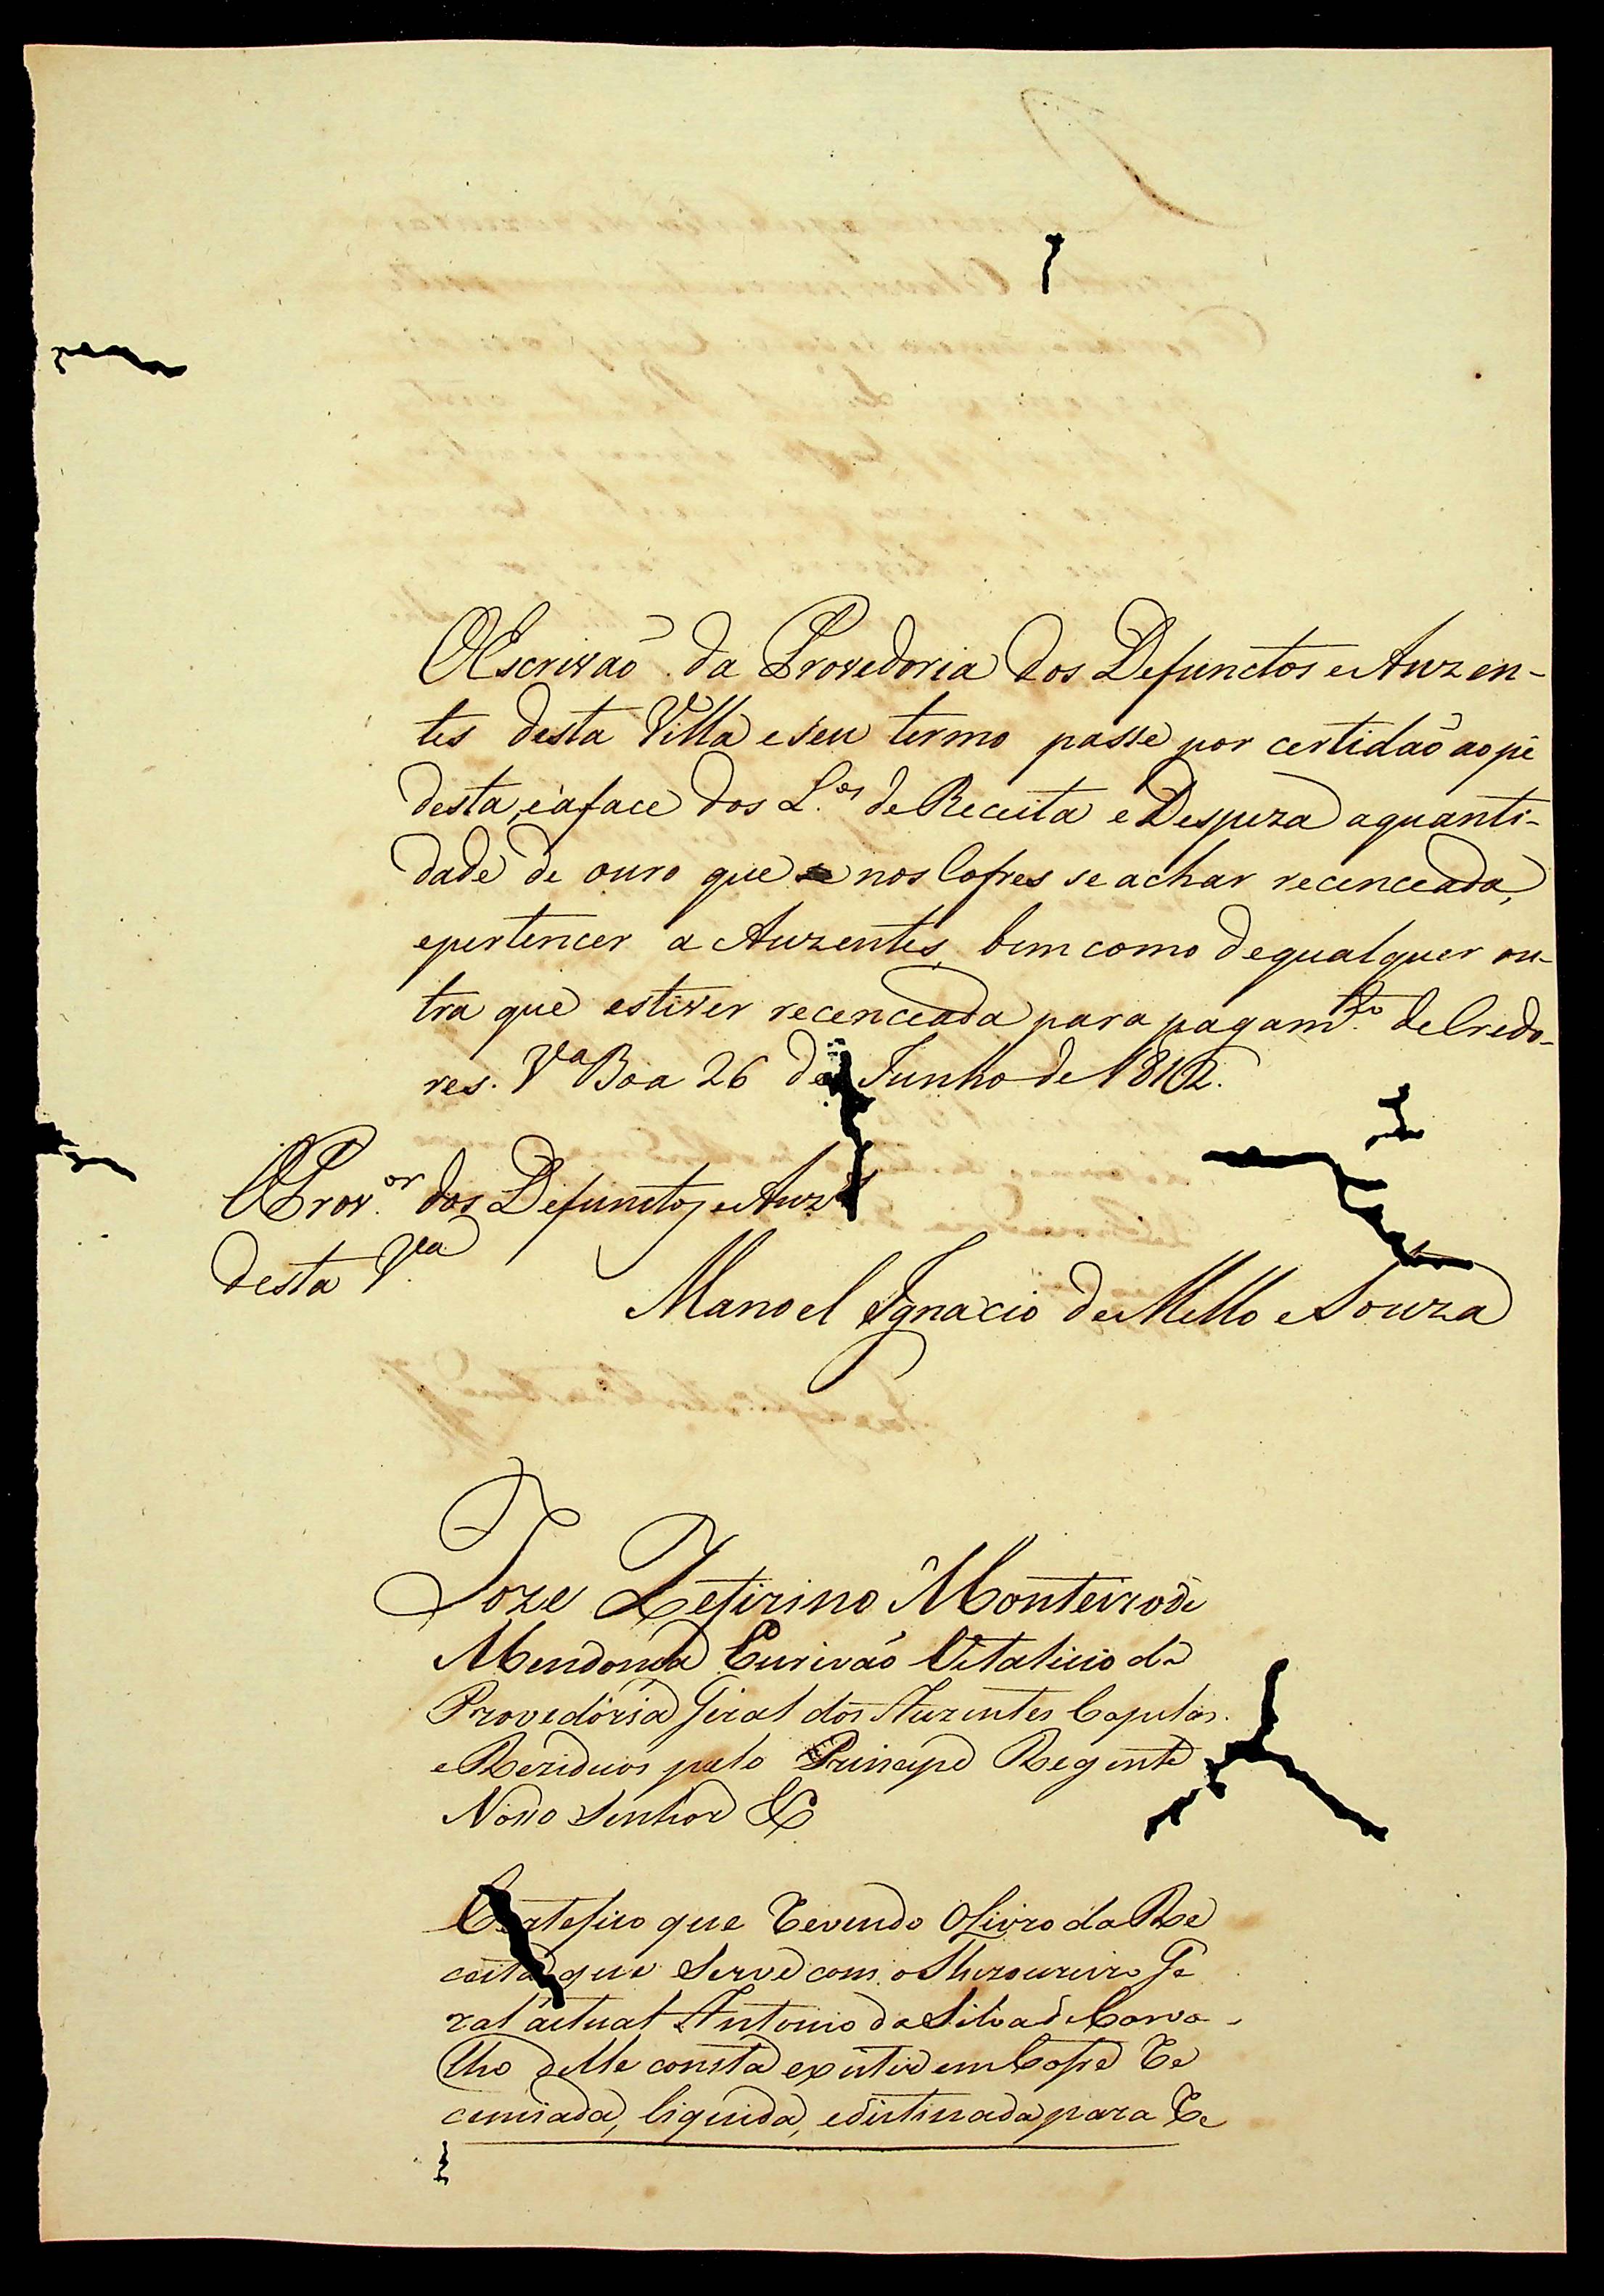 O Escrivaõ da Provedoria dos Defunctos e Auzen-
tes desta Villa e seu termo passe por certidaõ ao pé
desta, e á face dos L.os de Receita e Despeza a quanti-
dade de ouro que nos Cofres se achar recenceada,
e pertencer a Auzentes, bem como de qualquer ou-
tra que estiver recenceada para pagam.to de Credo-
res. V.a Boa 26 de Junho de 1812.
O Prov.or dos Defunctos e Auz.es
desta V.a
Manoel Ignacio de Mello e Souza
Joze Zefirino Monteiro de
Mendonca Escrivaõ Vitalicio da
Provedoria Geral dos Auzentes Capelas
e Reziduos pelo Principe Regente
Nosso Senhor &
Certefico que Revendo o Livro da Re
ceita que Serve com o Thezoureiro Ge
ral actual Antonio da Silva de Carva-
lho delle consta existir em Cofre Re
cenciada, liquida, e destinada para Re